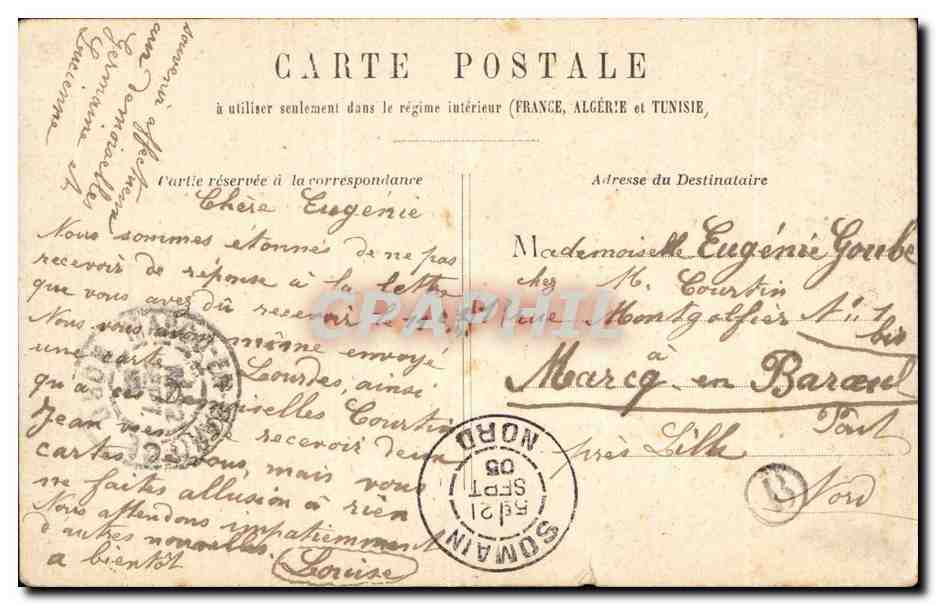 CARTE POSTALE
à utiliser seulement dans le régime intérieur (FRANCE, ALGÉRIE et TUNISIE)
Partie réservée à la correspondance
Adresse du Destinataire
Souvenir affectueux
aux demoiselles
Germaine et
Lucienne
Chère Eugénie
Nous sommes étonnés de ne pas
recevoir de réponse à la lettre
que vous avez dû recevoir
Nous vous avons même envoyé
une carte de Lourdes, ainsi
qu'à ces Demoiselles Courtin
Jean vient de recevoir deux
cartes de vous, mais vous
ne faites allusion à rien
Nous attendons impatiemment
d'autres nouvelles.
a bientôt Louise
Mademoiselle Eugénie Goube
chez M. Courtin
rue Montgolfier N° 1 bis
à
Marcq en Barœul
Pont
près Lille
Nord
SOMAIN
21
SEPT
05
NORD
B
CPAPHIL